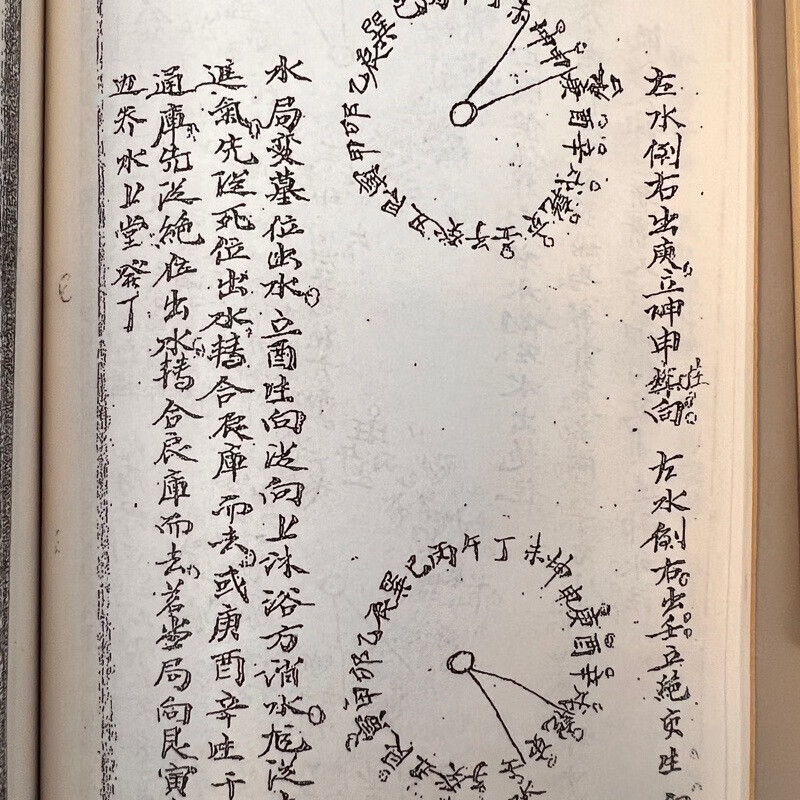 左水倒右出庚立坤申向 左水倒右出壬立絶亥
巽巳丁未坤申庚酉辛乾亥壬子癸丑艮寅甲卯乙辰
巽巳丙午丁未坤申庚酉辛壬子癸丑艮寅甲卯乙辰
水局变墓位出水立酉 向從向上沐浴方消水
進氣先從死位出水轉合辰庫而去或庚酉辛
通庫先從絶位出水轉合辰庫而去若當局向艮寅
迎養水上堂發丁